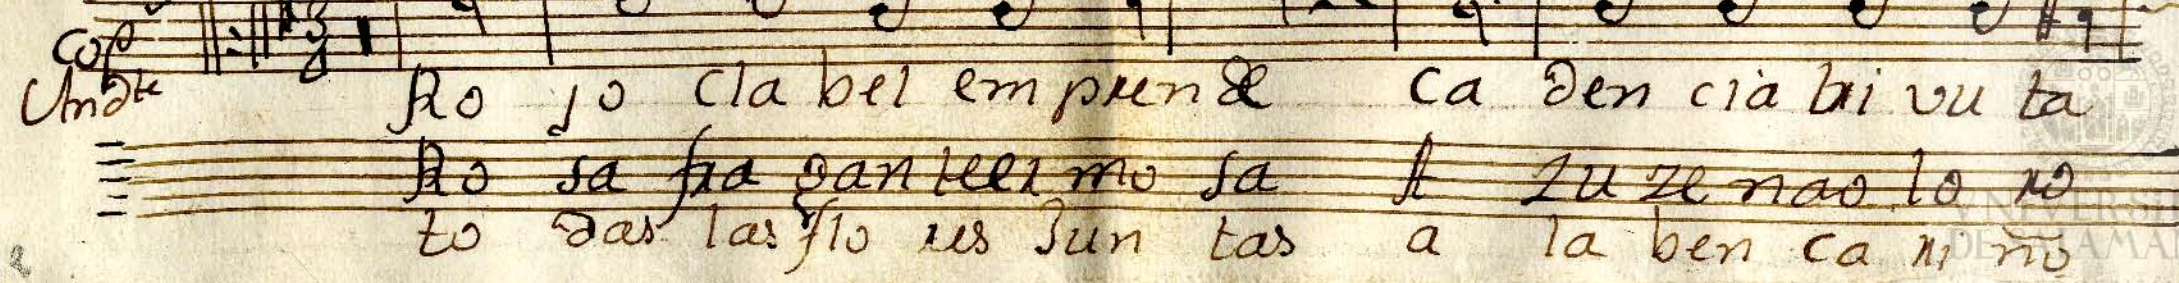 Cop
Andte Ro jo cla bel em pren de ca den cia bri vu ta
Ro sa fra gan teer mo sa A zu ze nao lo ro
to das las flo res Jun tas a la ben ca ri ño